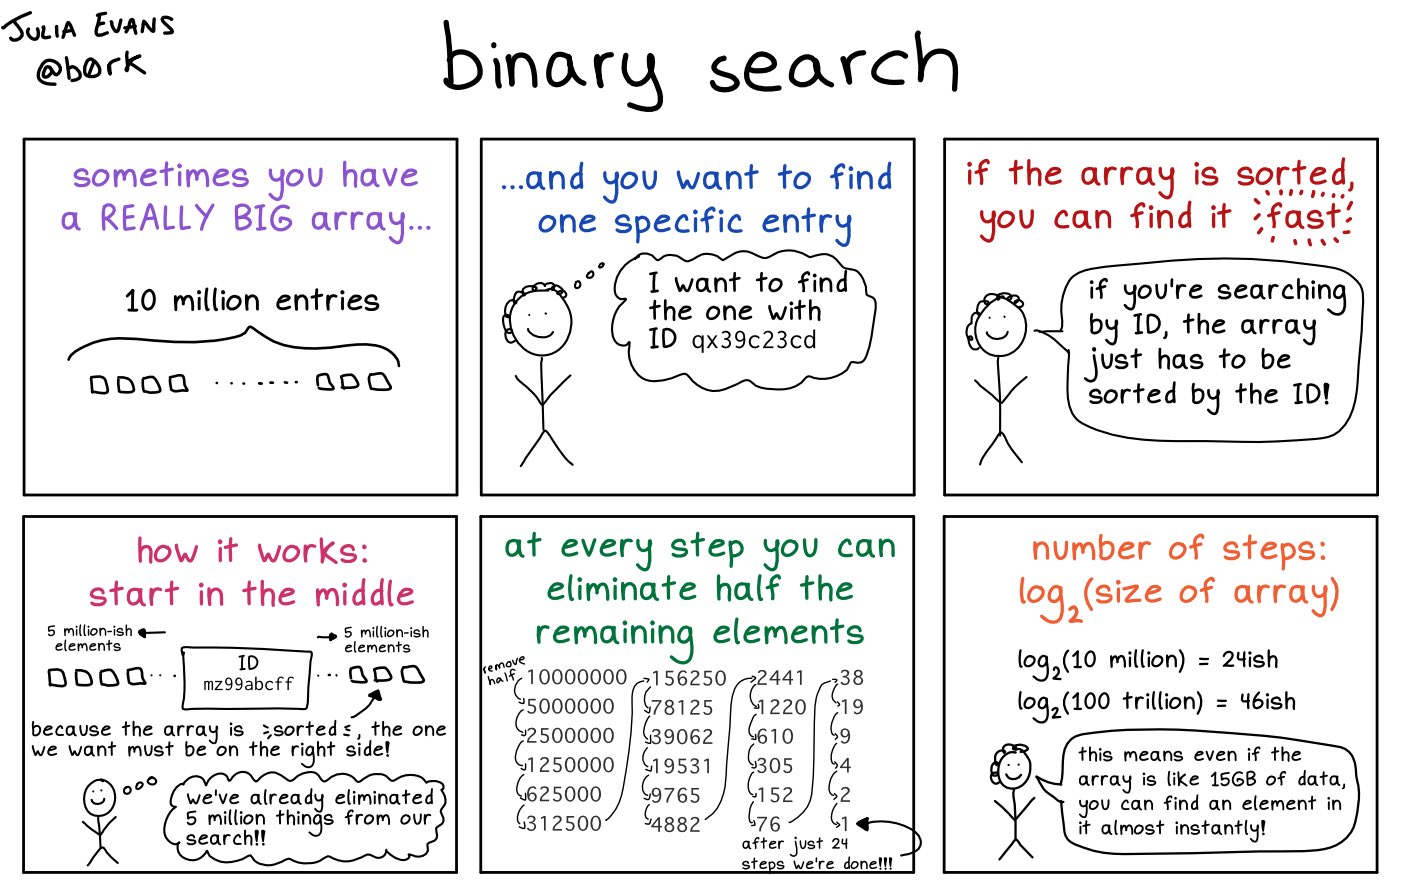 JULIA EVANS
@b0rk
binary search
sometimes you have
a REALLY BIG array...
10 million entries
...and you want to find
one specific entry
I want to find
the one with
ID qx39c23cd
if the array is sorted,
you can find it fast
if you're searching
by ID, the array
just has to be
sorted by the ID!
how it works:
start in the middle
5 million-ish
elements
ID
mz99abcff
5 million-ish
elements
because the array is sorted, the one
we want must be on the right side!
we've already eliminated
5 million things from our
search!!
at every step you can
eliminate half the
remaining elements
remove
half
10000000
5000000
2500000
1250000
625000
312500
156250
78125
39062
19531
9765
4882
2441
1220
610
305
152
76
38
19
9
4
2
1
after just 24
steps we're done!!!
number of steps:
log2(size of array)
log2(10 million) = 24ish
log2(100 trillion) = 46ish
this means even if the
array is like 15GB of data,
you can find an element in
it almost instantly!